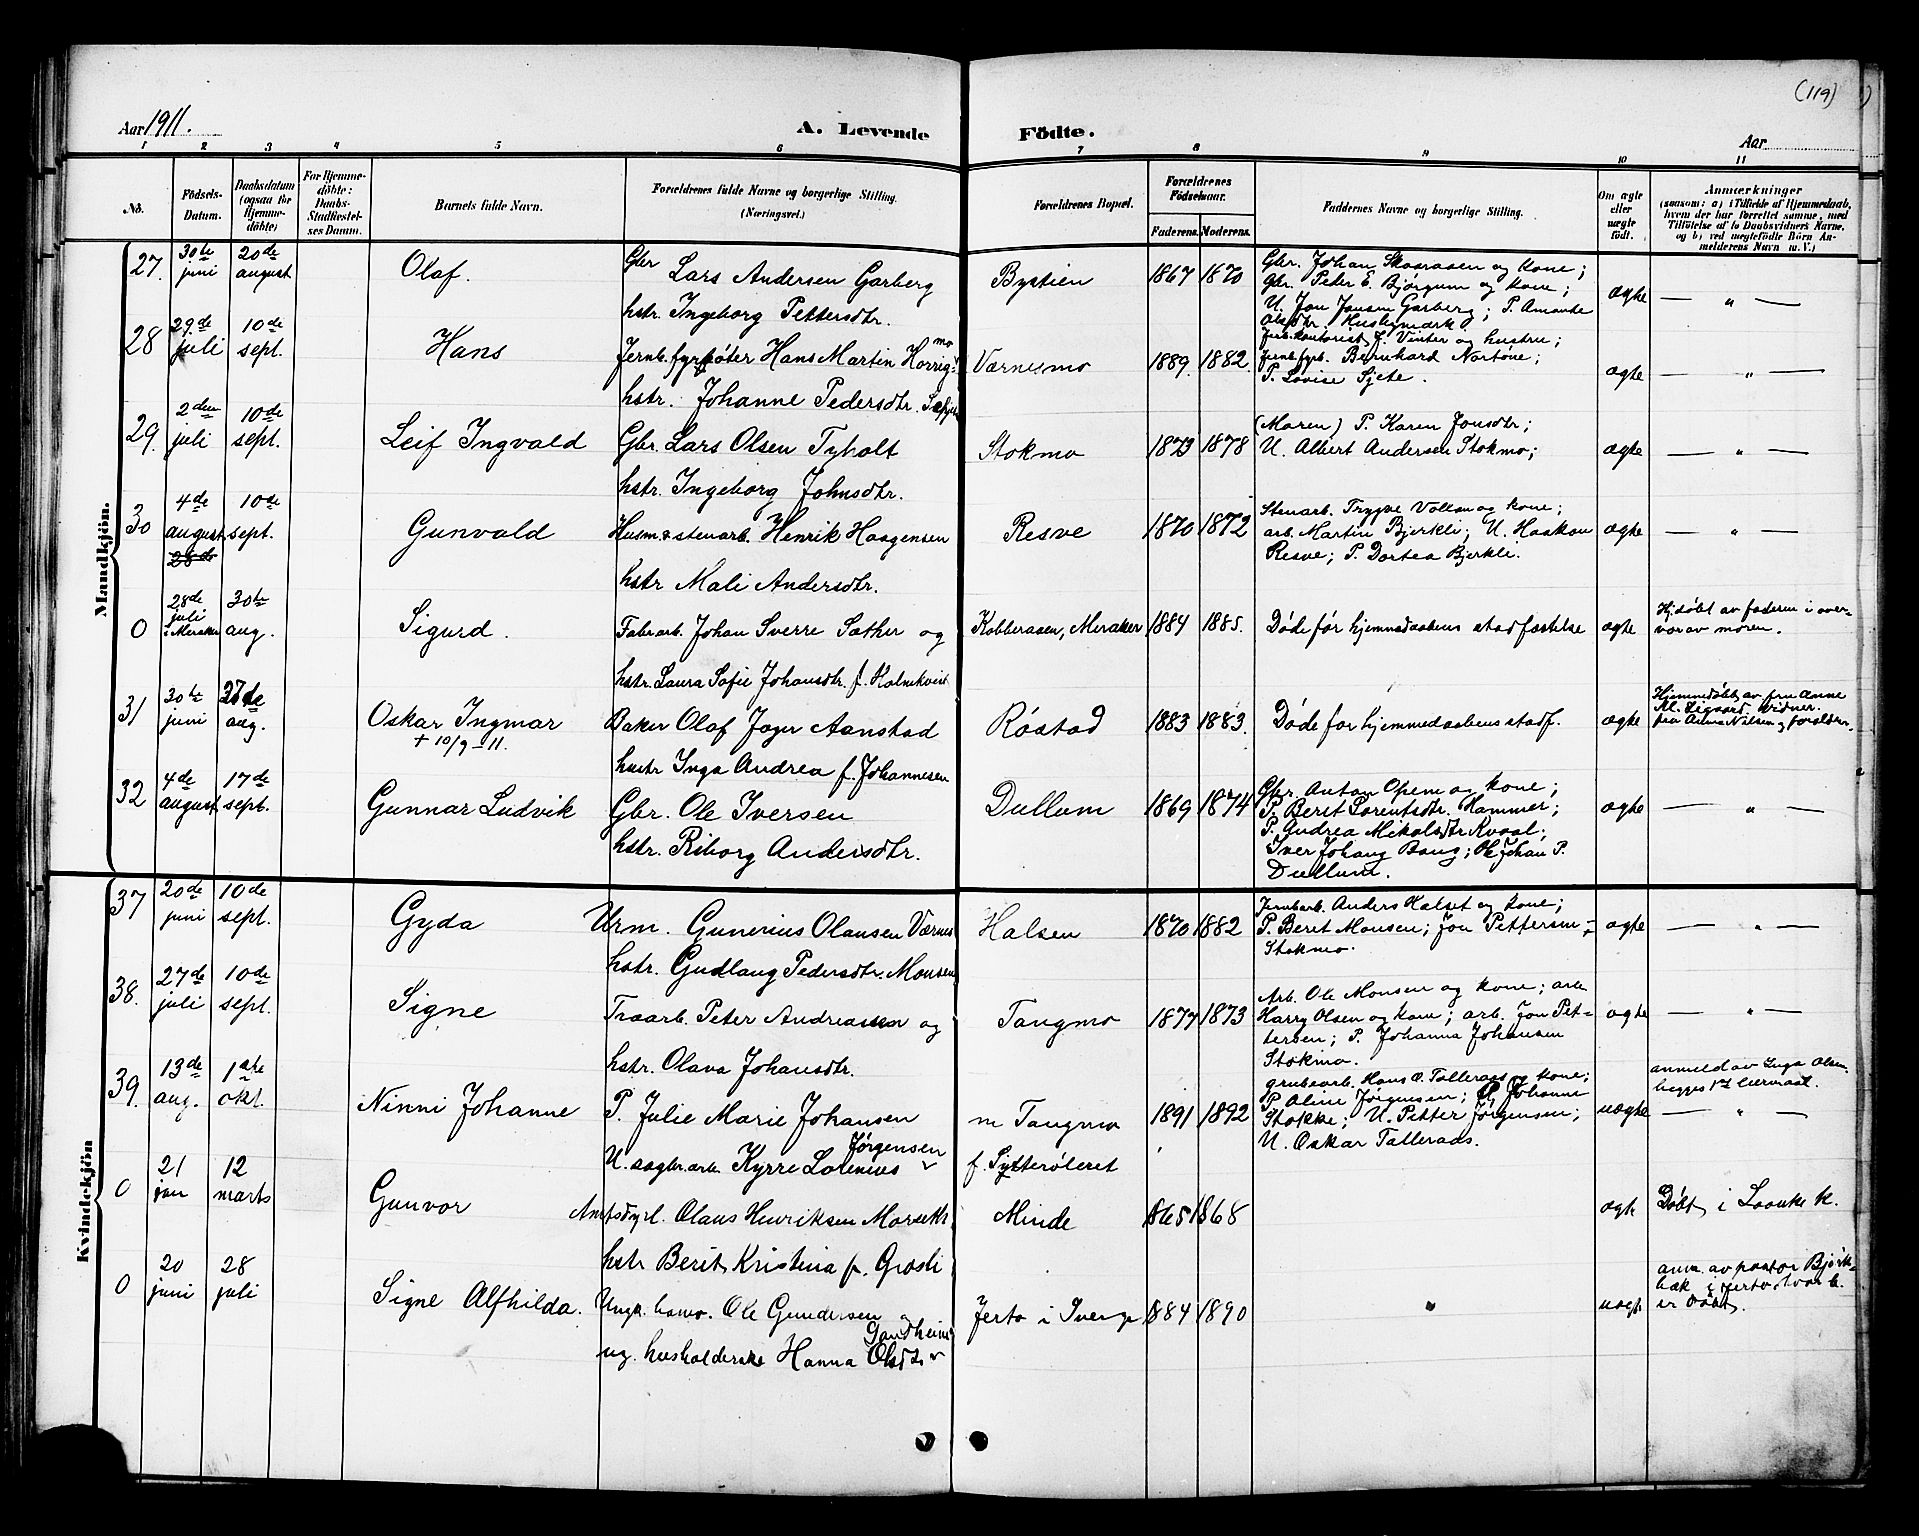 (119)
Aar 1911.
A. Levende Födte.
Aar
1 2 3 4 5 6 7 8 9 10 11
No.
Födsels-Datum.
Daabsdatum (ogsaa for Hjemme-döbte)
For Hjemme-döbte: Daabs-Stadfæstel-ses Datum.
Barnets fulde Navn.
Forældrenes fulde Navne og borgerlige Stilling. (Næringsvei.)
Forældrenes Bopæl.
Forældrenes Födselsaar.
Faderens. Moderens.
Faddernes Navne og borgerlige Stilling.
Om ægte eller uægte födt.
Anmærkninger
(saasom: a) i Tilfælde af Hjemmedaab, hvem der har forrettet samme, med Tilföielse af to Daabsvidners Navne, og b) ved uægtefödte Börn An-melderens Navn m. V.)
Mandkjön.
27. 30te juni 20de august Olaf. Gbr Lars Andersen Garberg
hstr. Ingeborg Pettersdtr. Bystien 1867 1870
Gbr. Johan Skaaraasen og kone;
Gbr. Peter E. Bjørgum og kone;
U. Jon Jonsen Garberg; P. Amanda
Olsdtr. Husbymark.
ægte — „ —
28 29de juli 10de sept. Hans Jernb. fyrbøter Hans Martin Horrigmo
hstr. Johanne Pedersdtr. Værnesmo 1889. 1882.
Jernb.kontorist J. Vinter og hustru;
Jernb.fyrb. Bernhard Nortône;
P. Lovise Sjete.
ægte — „ —
29. 2den juli 10de sept. Leif Ingvald Gbr. Lars Olsen Tyholt
hstr. Ingeborg Johnsdtr. Stokmo 1873 1878
(Maren) P. Karen Jonsdtr;
U. Albert Andersen Stokmo;
ægte — „ —
30 4de august 28de 10de sept. Gunvald Husm. & stenarb. Henrik Haagensen
hstr Mali Andersdtr. Resve 1870 1872
Stenarb. Trygve Vollan og kone;
arb. Martin Bjerkli; U. Haakon
Resve; P. Dortea Bjerkli.
ægte — „ —
0 28de juli i Meraker 30te aug. Sigurd. Fabr.arb. Johan Sverre Sæther og
hstr. Laura Sofie Johansdtr. f. Holmkvist Kobberaaen, Meraker 1884 1885.
Døde før hjemmedaabens stadfæstelse
ægte Hjdøbt av faderen i over-
vær av moren.
31 30te juni 27de aug. Oskar Ingmar
+ 10/9-11. Baker Olaf Jager Aanstad
hustr Inga Andrea f. Johannesen Røstad 1883 1883.
Døde før hjemmedaabens stadf.
ægte Hjemmedøbt av fru Anne
Kl. Ligaard. Vidner:
fru Anna Nilsen og forældrene.
32 4de august 17de sept. Gunnar Ludvik Gbr. Ole Iversen
hstr. Riborg Andersdtr. Dullum 1869 1874
Gbr. Anton Opem og kone;
P. Beret Lorentsdtr. Hammer;
P. Andrea Mikalsdtr Kvaal;
Iver Johans Bang; Ole Johan P.
Dullum.
ægte — „ —
Kvindekjön
37 20de juni 10de sept. Gyda Urm. Gunerius Olausen Værnes
hstr. Gudlaug Pedersdtr. Monsen Halsen 1870 1882
Jernbarb. Anders Halset og kone;
P. Beret Monsen; Jon Pettersen;
Stokmo.
ægte — „ —
38. 27de juli 10de sept. Signe Traarb. Peter Andreassen og
hstr. Olava Johansdtr. Tangmo 1877 1873
Arb. Ole Monsen og kone; arb.
Harry Olsen og kone; arb. Jon Pet-
tersen; P. Johanna Johansen
Stokmo.
ægte — „ —
39. 13de aug. 1ste okt. Ninni Johanne P. Julie Marie Johansen
U. sagbr.arb. Kyrre Lorenius Jørgensen m Tangmo
f. Ytterøleret 1891 1892
grubearb. Hans O. Talleraas og kone;
P. Aline Jørgensen; P. Johanne
Stokke; U. Petter Jørgensen;
U. Oskar Talleraas.
uægte anmeld av Inga Olsen
begges 1st leiermaal.
— „ —
0 21 jan 12 marts Gunvor Amtsdyrl. Olaus Henriksen Morseth
hstr Berit Kristina f. Grosli Minde 1865 1868
ægte Døbt i Laanke k.
0 20 juni 28 juli Signe Alfhilda. Ungk. Ole Gundersen
ug. husholderske Hanna Olsdtr Jerto i Sverge 1884 1890
„ uægte anm. av pastor Björk-
bæk i Jerto, hvor b.
er døbt.